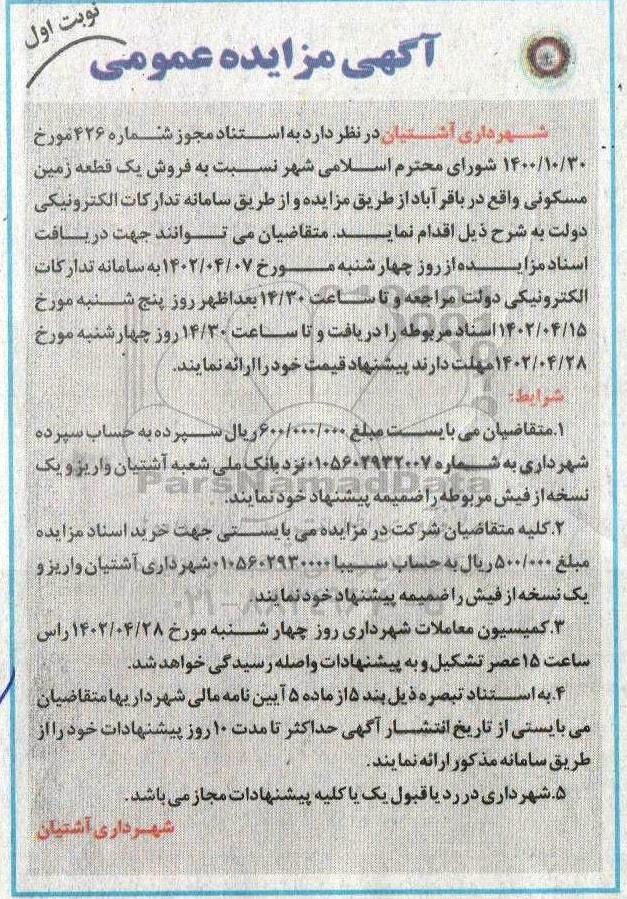 نوبت اول
آگهی مزایده عمومی
شهرداری آشتیان در نظر دارد به استناد مجوز شماره ۴۲۶ مورخ
۱۴۰۰/۱۰/۳۰ شورای محترم اسلامی شهر نسبت به فروش یک قطعه زمین
مسکونی واقع در باقر آباد از طریق مزایده و از طریق سامانه تدارکات الکترونیکی
دولت به شرح ذیل اقدام نماید. متقاضیان می توانند جهت دریافت
اسناد مزایده از روز چهار شنبه مورخ ۱۴۰۲/۰۴/۰۷ به سامانه تدارکات
الکترونیکی دولت مراجعه و تا ساعت ۱۴/۳۰ بعداظهر روز پنج شنبه مورخ
۱۴۰۲/۰۴/۱۵ اسناد مربوطه را دریافت و تا ساعت ۱۴/۳۰ روز چهارشنبه مورخ
۱۴۰۲/۰۴/۲۸ مهلت دارند پیشنهاد قیمت خود را ارائه نمایند.
شرایط:
۱.متقاضیان می بایست مبلغ ۶۰۰/۰۰۰/۰۰۰ ریال سپرده به حساب سپرده
شهرداری به شماره ۰۱۰۵۶۰۲۹۳۲۰۰۷ نزد بانک ملی شعبه آشتیان واریز و یک
نسخه از فیش مربوطه را ضمیمه پیشنهاد خود نمایند.
۲.کلیه متقاضیان شرکت در مزایده می بایستی جهت خرید اسناد مزایده
مبلغ ۵۰۰/۰۰۰ ریال به حساب سیبا ۰۱۰۵۶۰۲۹۳۰۰۰۰ شهرداری آشتیان واریز و
یک نسخه از فیش را ضمیمه پیشنهاد خود نمایند
۳.کمیسیون معاملات شهرداری روز چهار شنبه مورخ ۱۴۰۲/۰۴/۲۸ راس
ساعت ۱۵ عصر تشکیل و به پیشنهادات واصله رسیدگی خواهد شد.
۴.به استناد تبصره ذیل بند ۵ از ماده ۵ آیین نامه مالی شهرداریها متقاضیان
می بایستی از تاریخ انتشار آگهی حداکثر تا مدت ۱۰ روز پیشنهادات خود را از
طریق سامانه مذکور ارائه نمایند.
۵.شهرداری در رد یا قبول یک یا کلیه پیشنهادات مجاز می باشد.
شهرداری آشتیان
ParsNamadData